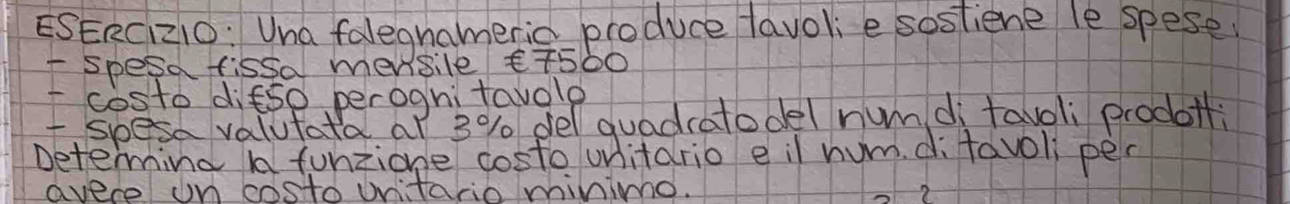 ESERCIZIO: Una falegnameria produce tavoli e sostiene le spese:
- spesa fissa mensile €7500
- costo di €50 per ogni tavolo
- spesa valutata al 3% del quadrato del num. di tavoli prodotti
Determina la funzione costo unitario e il num. di tavoli per
avere un costo unitario minimo.